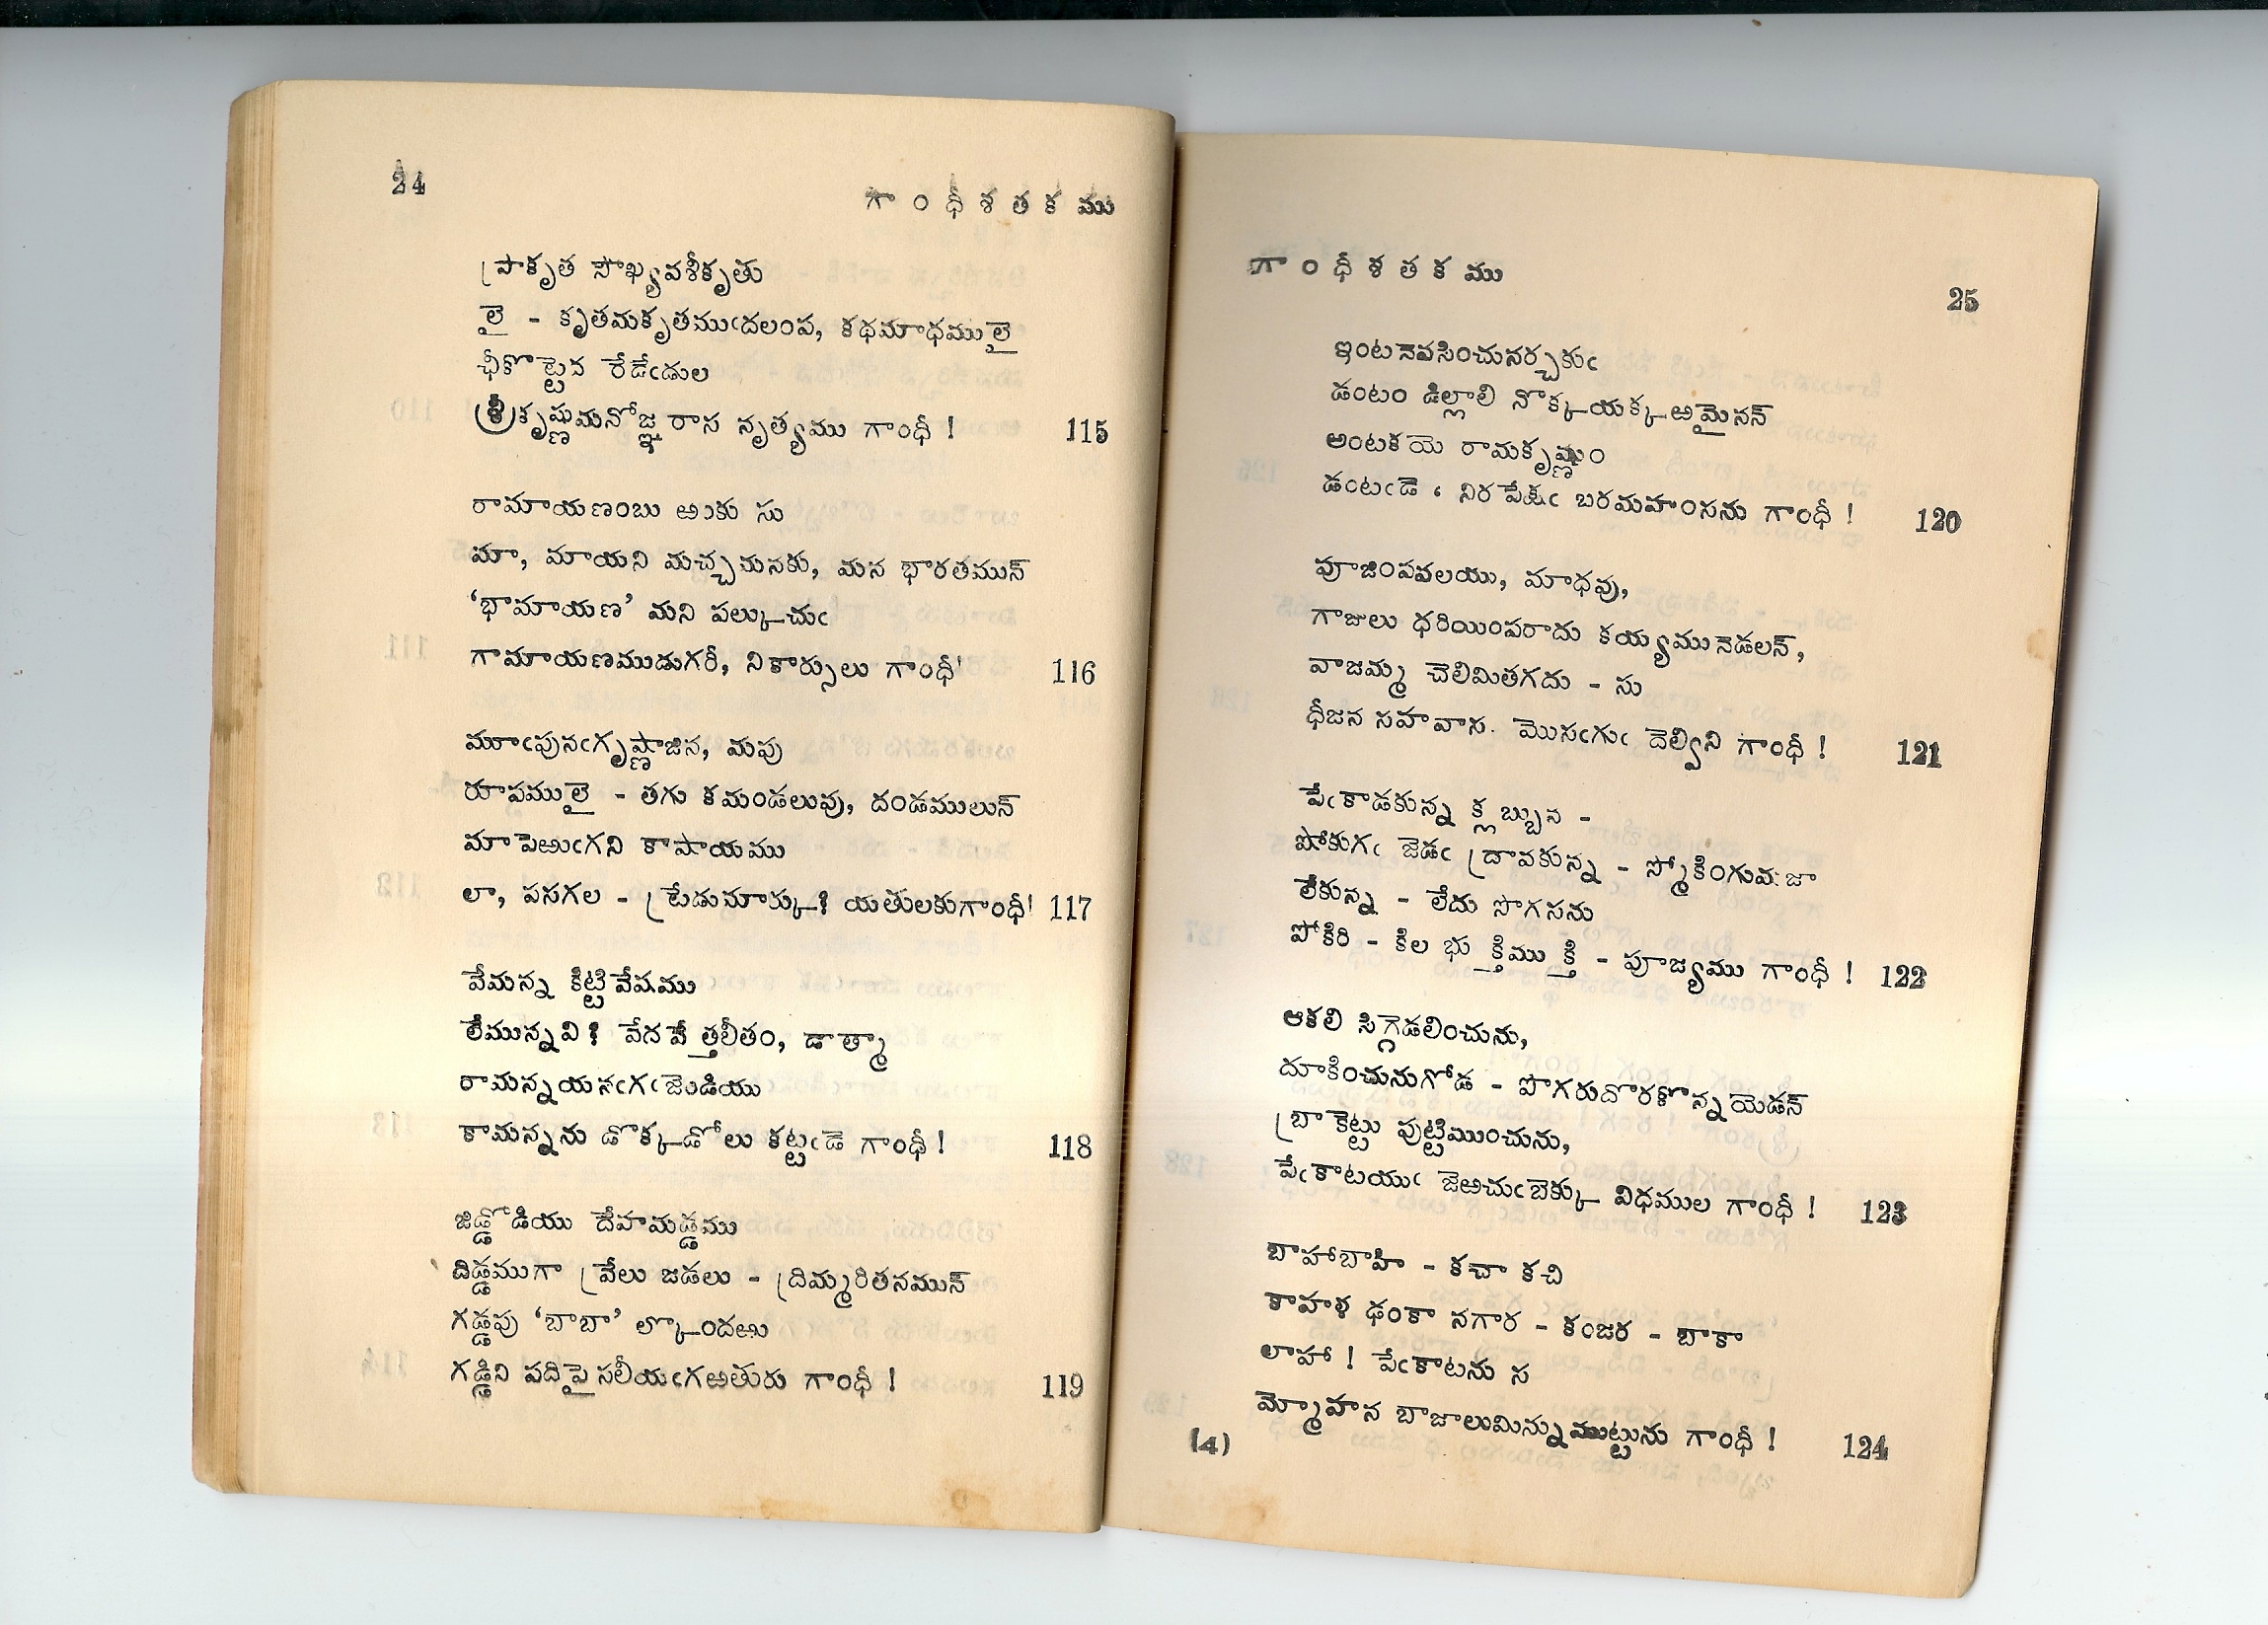 24
గాంధీశతకము
ప్రాకృత సౌఖ్యవశీకృతు
లై - కృతమకృతముఁదలంప, కథమాధములై
ఛీకొట్టెద రేడేఁడుల
శ్రీకృష్ణమనోజ్ఞ రాస నృత్యము గాంధీ ! 115
రామాయణంబు ఱుకు సు
మా, మాయని మచ్చమనకు, మన భారతమున్
‘భామాయణ’ మని పల్కుచుఁ
గామాయణముడుగరీ, నికార్సులు గాంధీ! 116
మూఁపునఁగృష్ణాజిన, మపు
రూపములై - తగు కమండలువు, దండములున్
మాపెఱుఁగని కాషాయము
లా, పసగల - ట్రేడుమార్కు? యతులకుగాంధీ! 117
వేమన్న కిట్టి వేషము
లేమున్నవి? వేద వే త్తలీతం, డాత్మా
రామన్నయనఁగఁజెండియు
కామన్నను డొక్కడోలు కట్టఁడె గాంధీ! 118
జిడ్డోడియు దేహమడ్డము
దిడ్డముగా వ్రేలు జడలు - ద్రిమ్మరితనమున్
గడ్డపు ‘బాబా’ ల్కొందఱు
గడ్డిని పదిపై సలీయఁగఱతురు గాంధీ ! 119
గాంధీశతకము
25
ఇంటనెవసించునర్చకుఁ
డంటం డిల్లాలి నొక్కయక్కఱమైనన్
అంటకయె రామకృష్ణుం
డంటఁడె ‘ నిరపేక్షుఁ బరమహంసను గాంధీ ! 120
పూజింపవలయు, మాధవు,
గాజులు ధరియింపరాదు కయ్యమునెడలన్,
వాజమ్మ చెలిమితగదు - సు
ధీజన సహవాస మొసఁగుఁ దెల్విని గాంధీ ! 121
పేఁకాడకున్న క్లబ్బున -
పోకుగఁ జెడఁ ద్రావకున్న - స్మోకింగుమజా
లేకున్న - లేదు సొగసను
పోకిరి - కిల భుక్తిముక్తి - పూజ్యము గాంధీ ! 122
ఆకలి సిగ్గెడలించును,
దూకించునుగోడ - పొగరుదొరకొన్నయెడన్
బ్రాకెట్టు పుట్టిముంచును,
పేఁకాటయుఁ జెఱచుఁబెక్కు విధముల గాంధీ ! 123
బాహాబాహి - కచా కచి
కాహళ ఢంకా నగార - కంజర - బాకా
లాహా ! పేఁకాటను స
మ్మోహన బాజాలుమిన్నుముట్టును గాంధీ ! 124
(4)